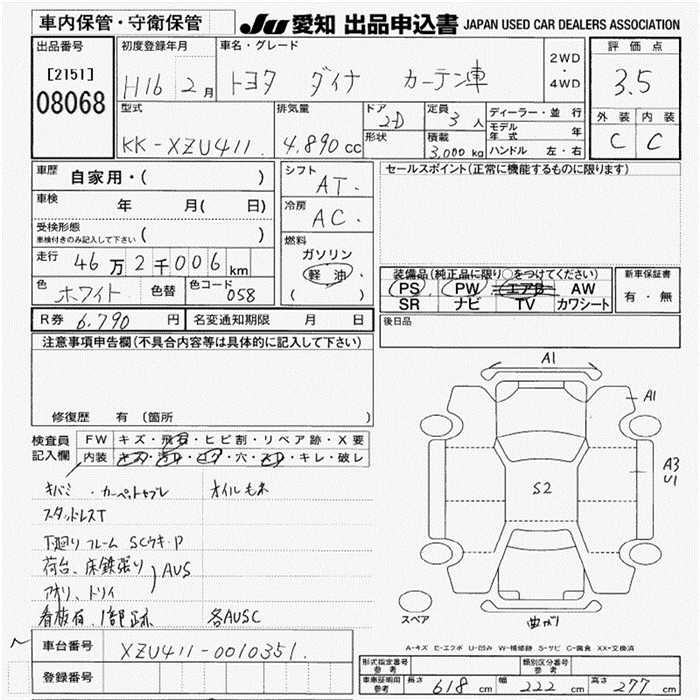 車内保管・守衛保管
JU 愛知 出品申込書 JAPAN USED CAR DEALERS ASSOCIATION
出品番号
[2151]
08068
初度登録年月
H16 2月
車名・グレード
トヨタ ダイナ カーテン車
2WD
・
4WD
評価点
3.5
外装 内装
C C
型式
KK-XZU411
排気量
4.890cc
ドア
2D
形状
定員
3人
積載
3,000kg
ディーラー・並行
モデル年式 年
ハンドル 左・右
車歴
自家用・( )
車検
年 月( 日)
受検形態
車検付きのみ記入して下さい ( )
走行 46万2千006km
色 ホワイト 色替 色コード 058
シフト
AT.
冷房
AC.
燃料
ガソリン
軽油
( )
セールスポイント(正常に機能するものに限ります)
装備品(純正品に限り○をつけてください)
PS PW エアB AW
SR ナビ TV カワシート
新車保証書
有・無
R券 6.790 円 名変通知期限 月 日
後日品
注意事項申告欄(不具合内容等は具体的に記入して下さい)
修復歴 有(箇所 )
検査員記入欄
FW キズ・飛石・ヒビ割・リペア跡・X要
内装 キズ・汚レ・コゲ・穴・スレ・キレ・破レ
キバミ・カーペットヤブレ オイルモレ
スタッドレスT
下廻りフレームSCウキ・P
荷台、床鉄張り
アオリ、トリイ
AUS
看板有、1部跡 各AUSC
A1
A1
A3
U1
S2
曲がり
スペア
A-キズ E-エクボ U-凹み W-補修跡 S-サビ C-腐食 XX-交換済
車台番号 XZU411-0010351.
登録番号
形式指定番号 参考
類別区分番号 参考
車庫証明用 参考 長さ 618cm 幅 222cm 高さ 277cm